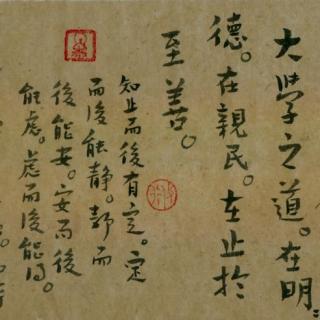 大學之道。在明
德。在親民。在止於
至善。
知止而後有定。定
而後能靜。靜而
後能安。安而後
能慮。慮而後能得。